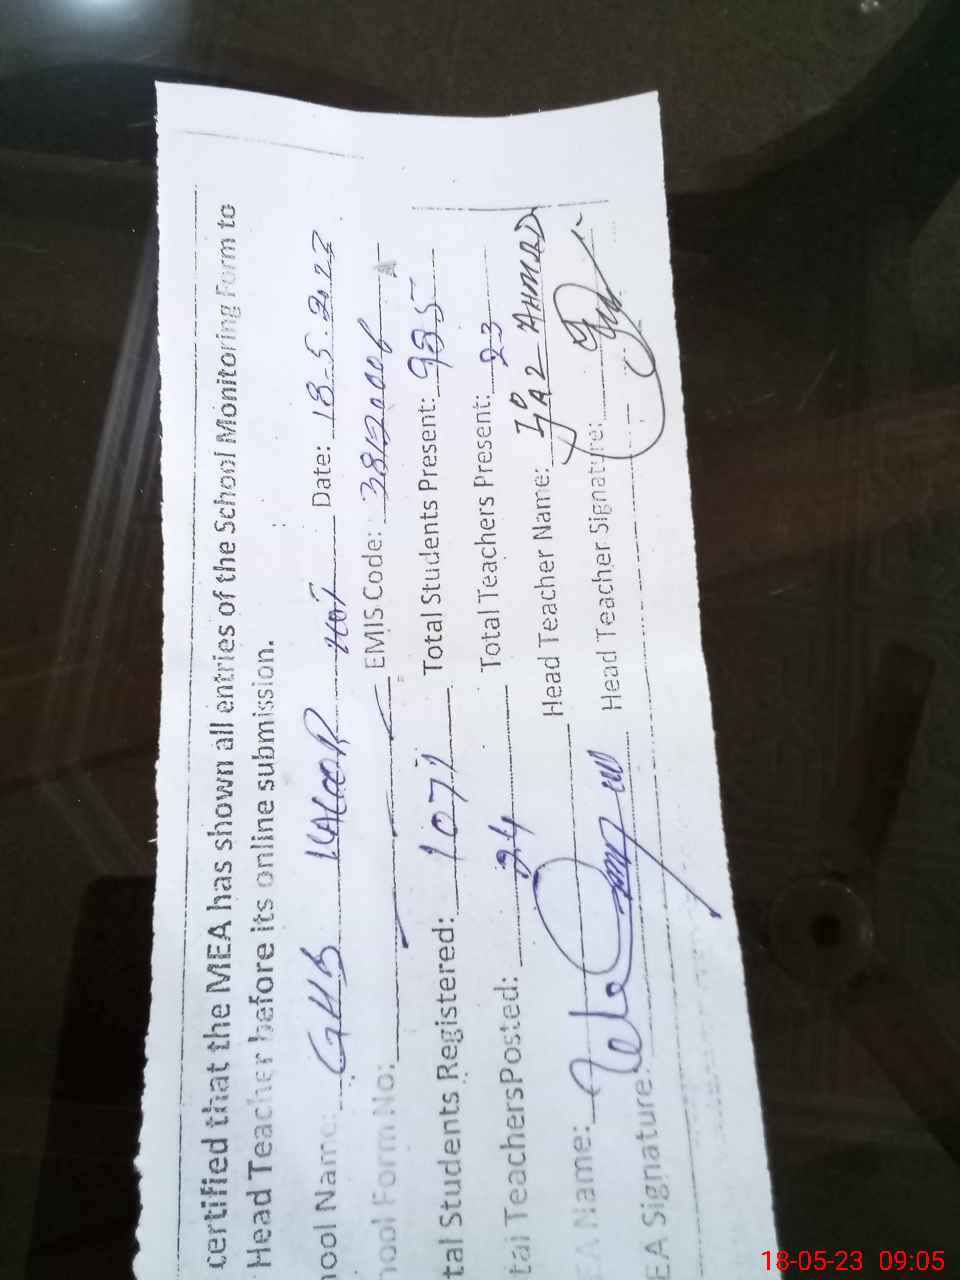 certified that the MEA has shown all entries of the School Monitoring Form to
Head Teacher before its online submission.
ool Name: GHS KAKOOR KOT Date: 18-5-2023
hool Form No: EMIS Code: 38120006
tal Students Registered: 1071 Total Students Present: 925
tal TeachersPosted: 24 Total Teachers Present: 23
EA Name: Head Teacher Name: IJAZ AHMAD
EA Signature: Head Teacher Signature:
18-05-23 09:05